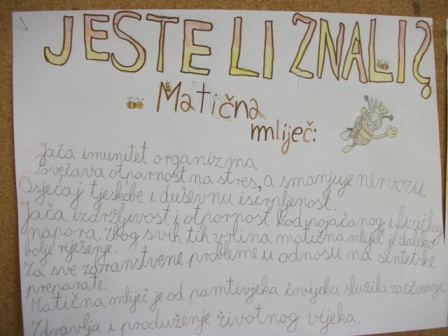 JESTE LI ZNALI?
Matična
mliječ:
Jača imunitet organizma
Povećava otpornost na stres, a smanjuje nervozu.
Osjećaj tjeskobe i duševnu iscrpljenost.
Jača izdržljivost i otpornost kod pojačanog i fizičkog
napora. Zbog svih tih vrlina matična mliječ je daleko
bolje riješenje.
Za sve zdravstvene probleme u odnosu na sintetske
preparate.
Matična mliječ je od pamtivjeka čovijeku služila za čuvanje
Zdravlja i produženje životnog vijeka.